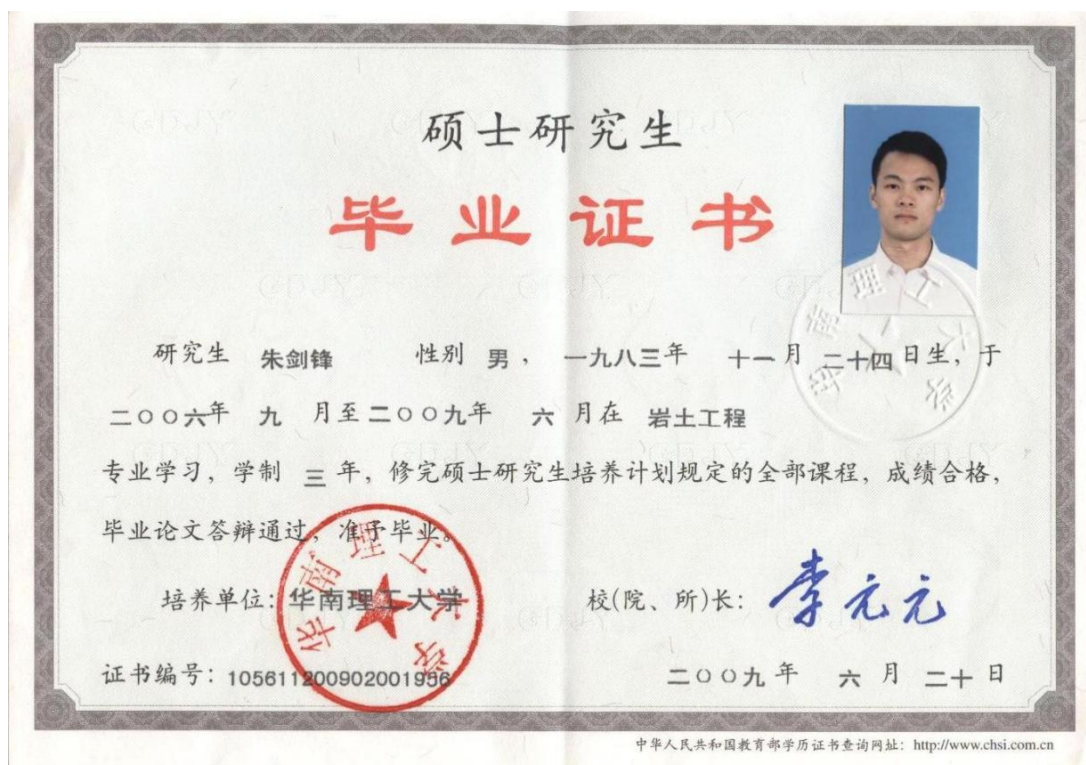 硕士研究生
毕业证书
研究生 朱剑锋 性别 男， 一九八三年 十一月 二十四日生，于
二〇〇六年 九 月至二〇〇九年 六 月在 岩土工程
专业学习，学制 三 年，修完硕士研究生培养计划规定的全部课程，成绩合格，
毕业论文答辩通过，准予毕业。
培养单位：华南理工大学
校(院、所)长：李元元
证书编号：105611200902001956
二〇〇九年 六 月 二十 日
华南理工大学
华南理工大学
中华人民共和国教育部学历证书查询网址：http://www.chsi.com.cn